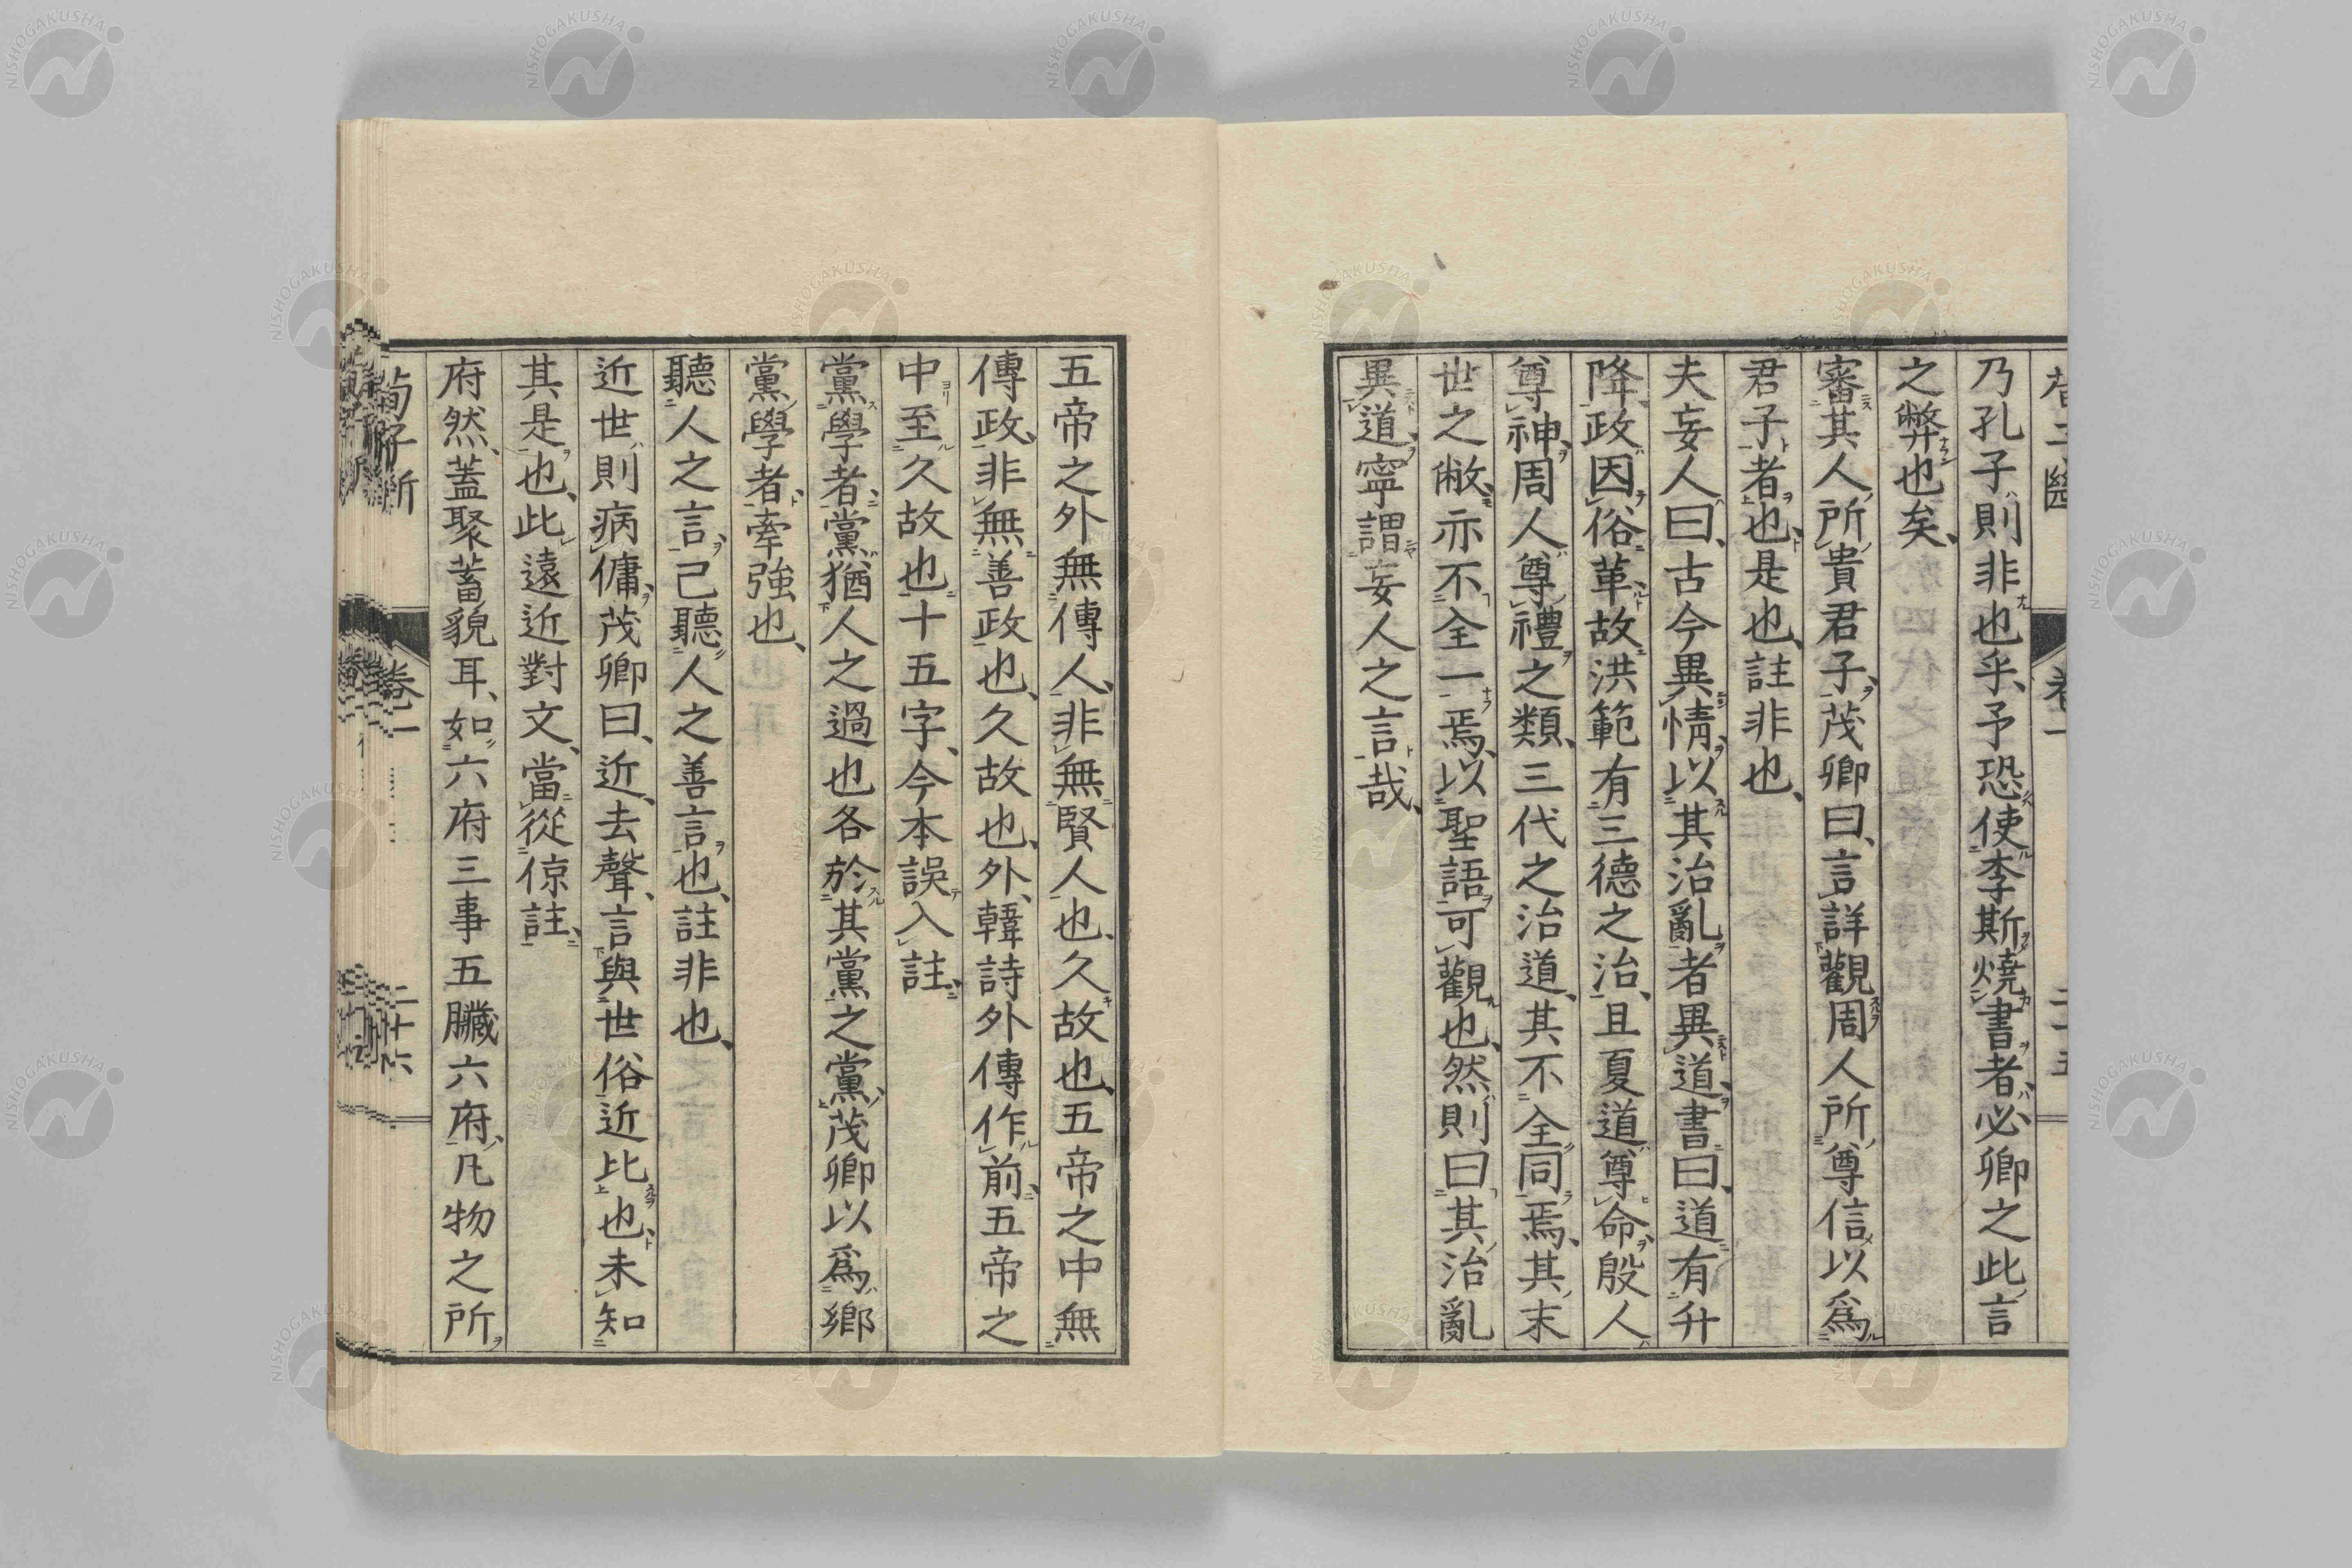 乃孔子則非也乎、予恐使李斯燒書者、必卿之此言
之弊也矣、
審其人所貴君子、茂卿曰、言詳觀周人所尊信以爲
君子者也、是也、註非也、
夫妄人曰、古今異情、以其治亂者異道、書曰、道有升
降、政因俗革、故洪範有三德之治、且夏道尊命、殷人
尊神、周人尊禮之類、三代之治道、其不全同焉、其末
世之敝、亦不全一焉、以聖語可觀也、然則曰其治亂
異道、寧謂妄人之言哉、
五帝之外無傳人、非無賢人也、久故也、五帝之中無
傳政、非無善政也、久故也、外、韓詩外傳作前、五帝之
中至久故也十五字、今本誤入註、
黨學者、黨猶人之過也各於其黨之黨、茂卿以爲鄉
黨學者、牽強也、
聽人之言、己聽人之善言也、註非也、
近世則病傭、茂卿曰、近、去聲、言與世俗近比也、未知
其是也、此遠近對文、當從倞註、
府然、蓋聚蓄貌耳、如六府三事五臟六府、凡物之所
荀子斷
卷一
二十六
NISHOGAKUSHA